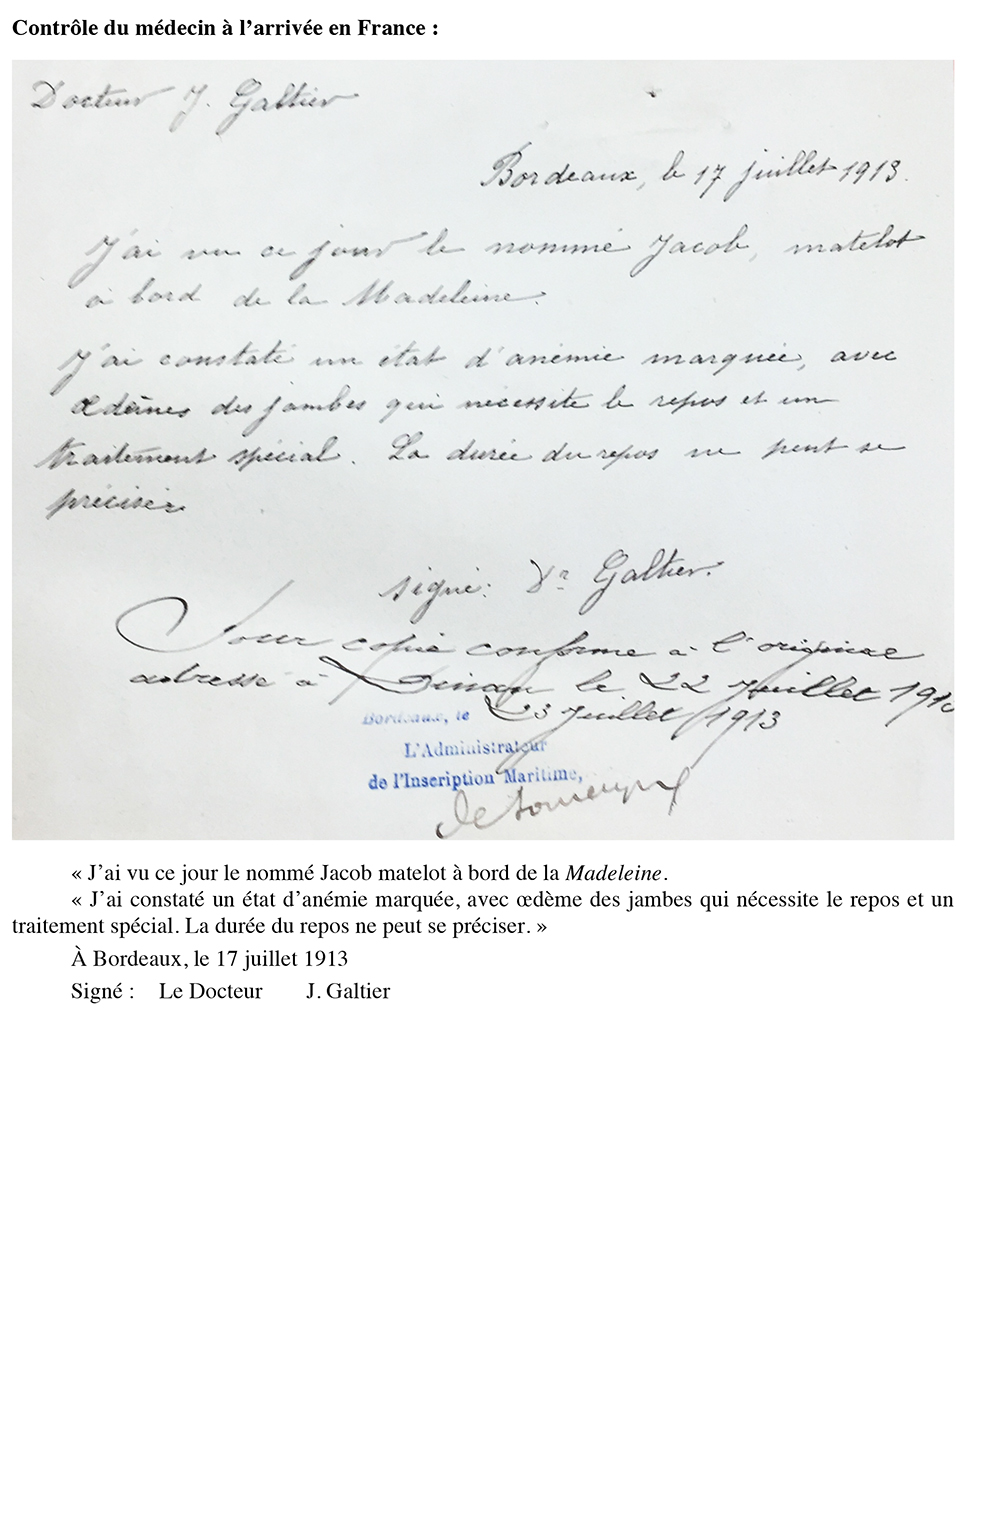 Contrôle du médecin à l’arrivée en France :
Docteur J. Galtier
Bordeaux, le 17 juillet 1913.
J'ai vu ce jour le nommé Jacob, matelot
à bord de la Madeleine.
J'ai constaté un état d'anémie marquée, avec
œdèmes des jambes qui nécessite le repos et un
traitement spécial. La durée du repos ne peut se
préciser
signé: Dr Galtier.
Pour copie conforme à l'original
adressé à Dinan le 22 Juillet 1913
Bordeaux, le 23 Juillet 1913
L'Administrateur
de l'Inscription Maritime,
« J’ai vu ce jour le nommé Jacob matelot à bord de la Madeleine.
« J’ai constaté un état d’anémie marquée, avec œdème des jambes qui nécessite le repos et un
traitement spécial. La durée du repos ne peut se préciser. »
À Bordeaux, le 17 juillet 1913
Signé : Le Docteur J. Galtier